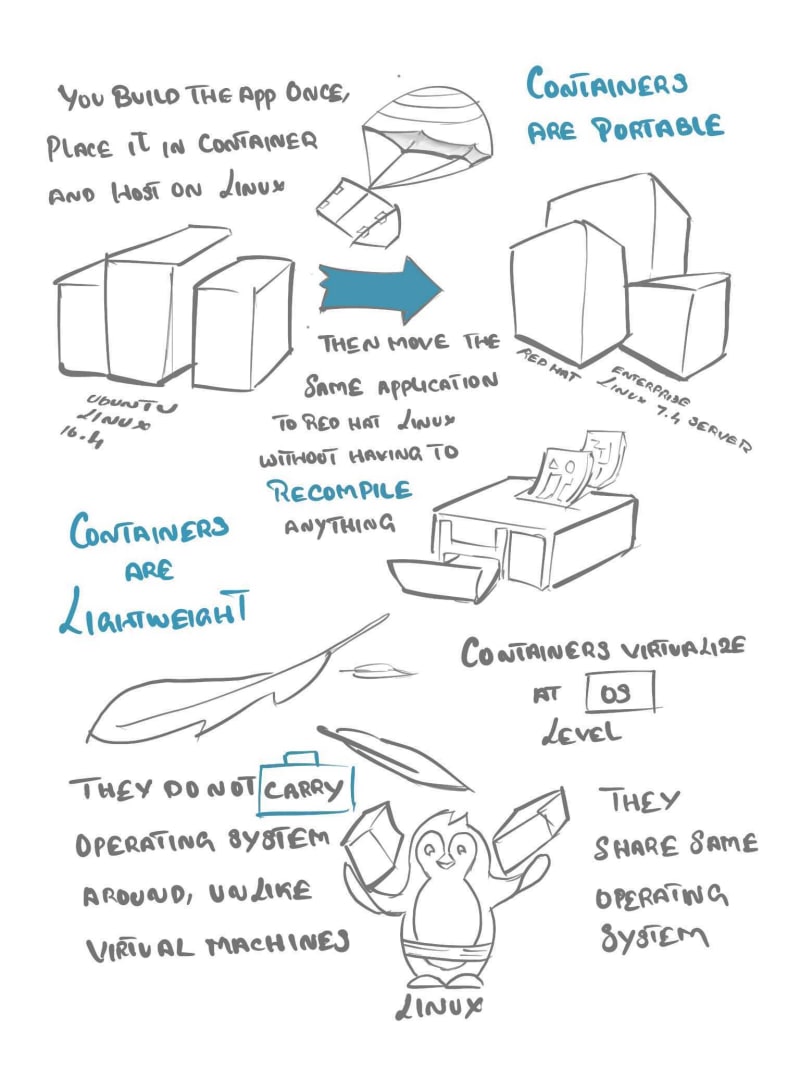 YOU BUILD THE APP ONCE,
PLACE IT IN CONTAINER
AND HOST ON LINUX
CONTAINERS
ARE PORTABLE
UBUNTU
LINUX
16.4
THEN MOVE THE
SAME APPLICATION
TO RED HAT LINUX
WITHOUT HAVING TO
RECOMPILE
ANYTHING
RED HAT
ENTERPRISE
LINUX 7.4 SERVER
CONTAINERS
ARE
LIGHTWEIGHT
CONTAINERS VIRTUALIZE
AT OS
LEVEL
THEY DO NOT CARRY
OPERATING SYSTEM
AROUND, UNLIKE
VIRTUAL MACHINES
THEY
SHARE SAME
OPERATING
SYSTEM
LINUX